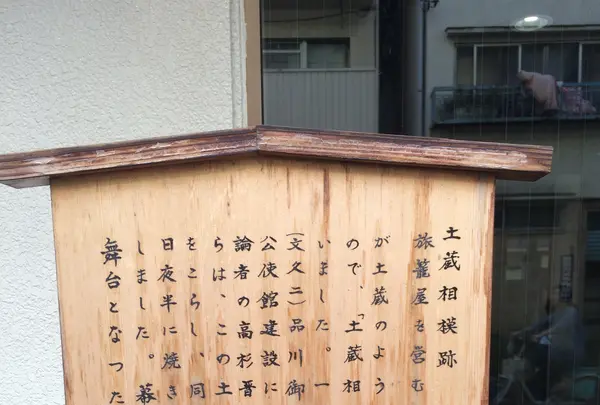 土蔵相模跡
旅籠屋を営む
が土蔵のよう
ので、「土蔵相
いました。一
(文久二)品川御
公使館建設に
論者の高杉晋
らは、この土
をこらし、同
日夜半に焼き
しました。幕
舞台となった